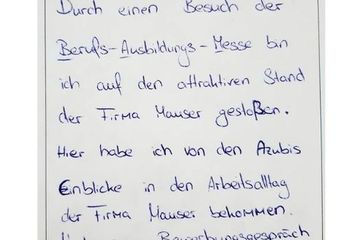 Durch einen Besuch der
Berufs-Ausbildungs-Messe bin
ich auf den attraktiven Stand
der Firma Mauser gestoßen.
Hier habe ich von den Azubis
Einblicke in den Arbeitsalltag
der Firma Mauser bekommen.
Bewerbungsgespräch